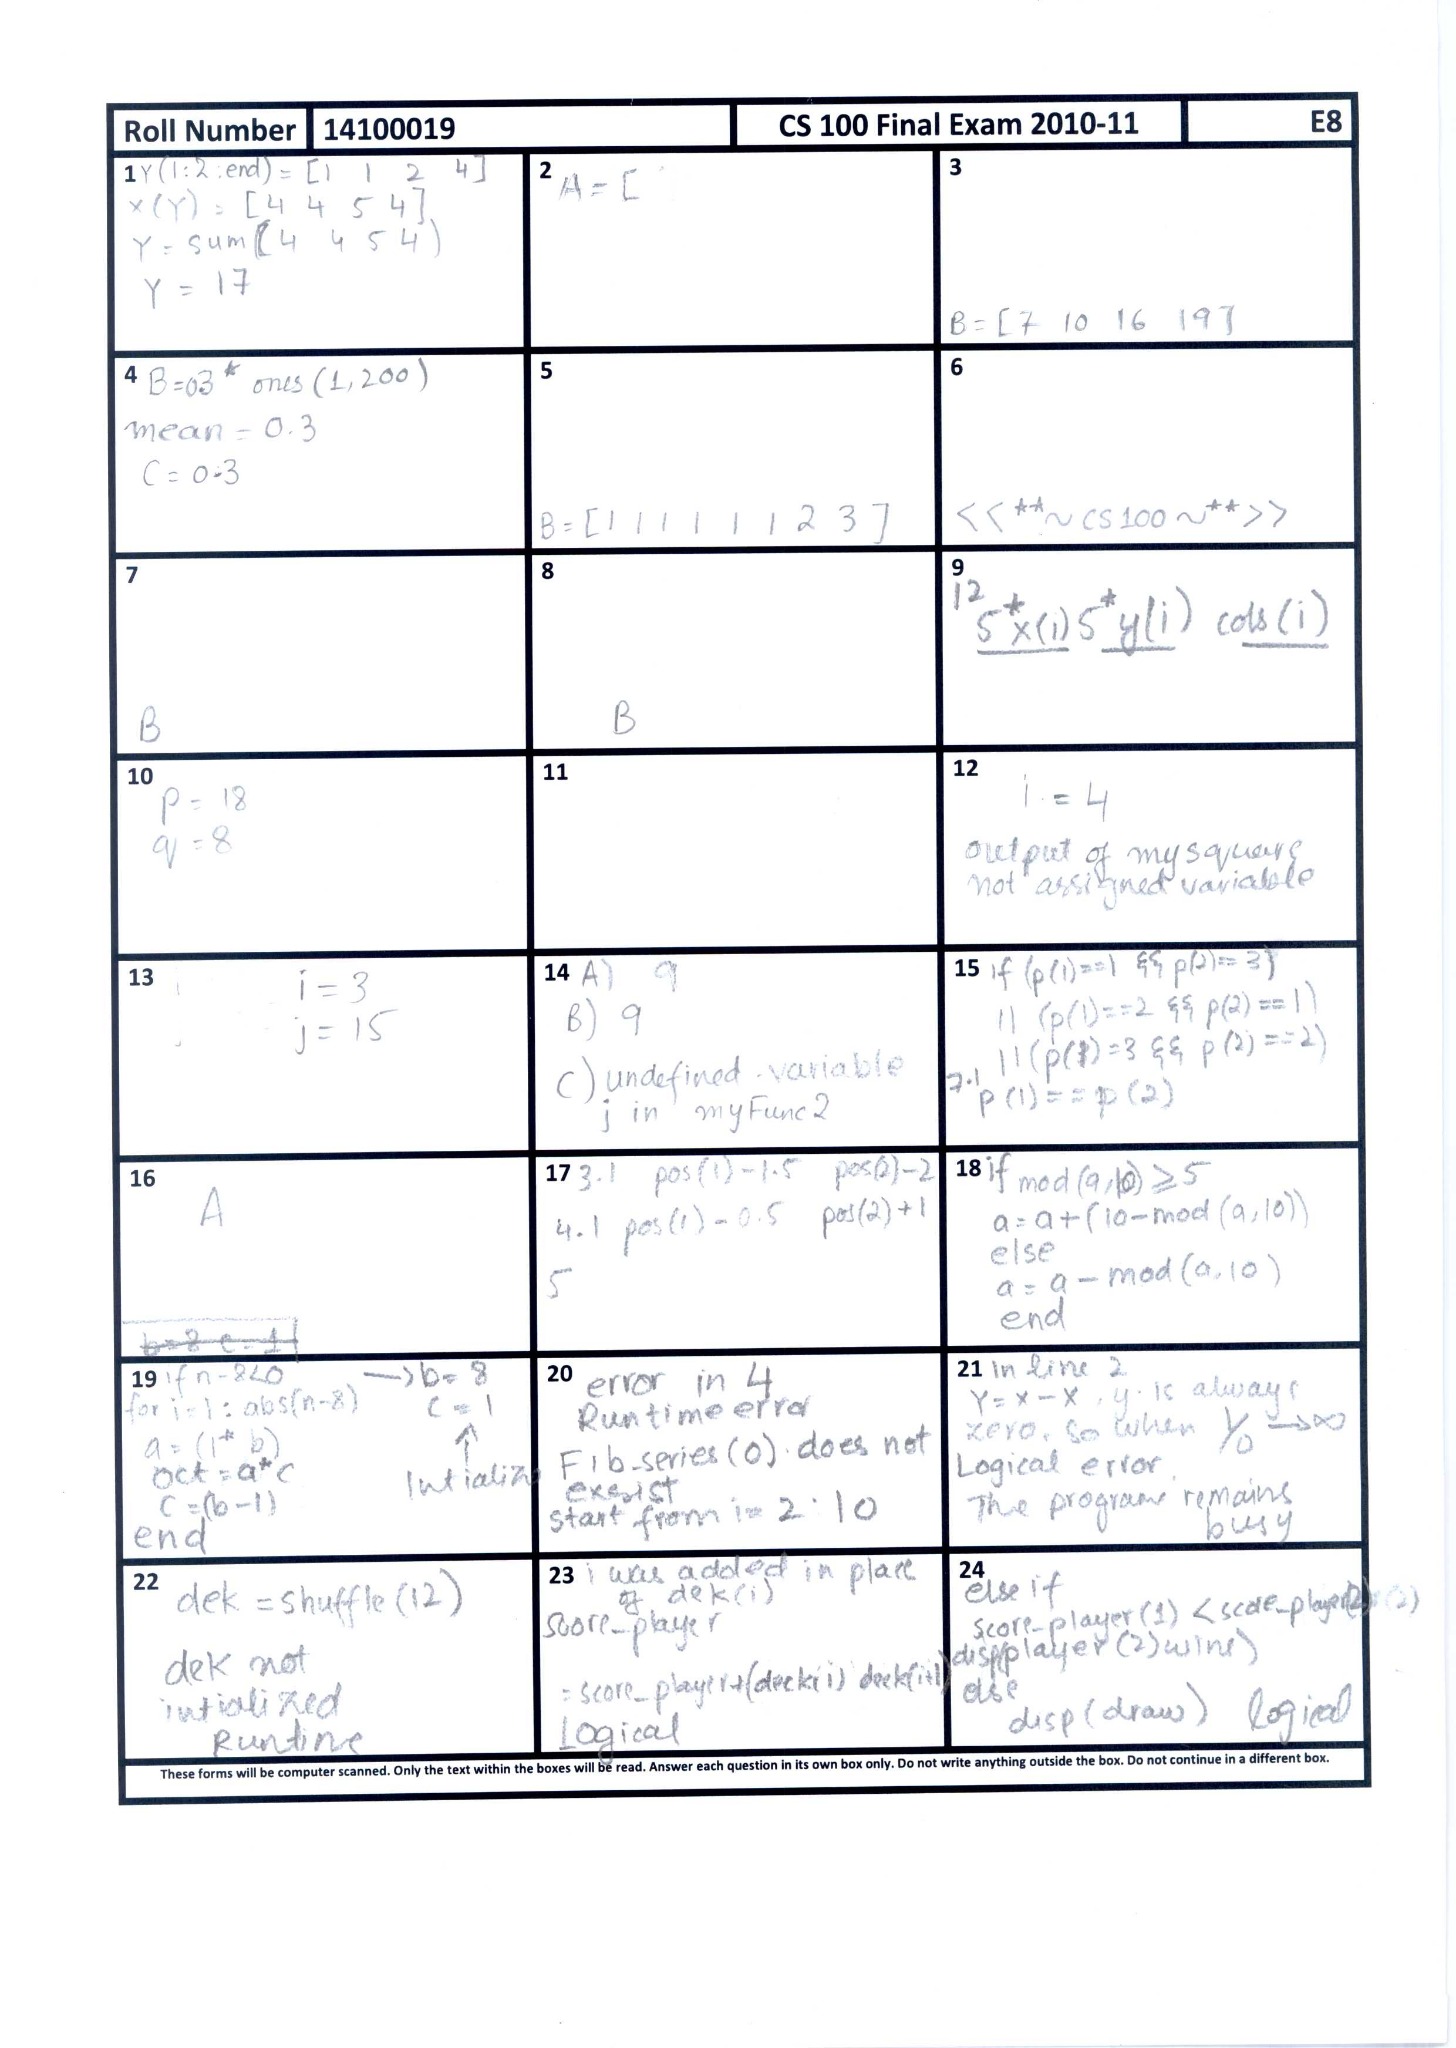 Roll Number 14100019 CS 100 Final Exam 2010-11 E8
1 Y(1:2:end) = [1 1 2 4]
X(Y) = [4 4 5 4]
Y = sum(4 4 5 4)
Y = 17
2 A = [
3
B = [7 10 16 19]
4 B=03* ones (1,200)
mean = 0.3
C = 0.3
5
B = [1 1 1 1 1 1 2 3]
6
<<**~CS100~**>>
7
B
8
B
9
12 5*x(i) 5*y(i) cols(i)
10
p = 18
q = 8
11
12
i = 4
output of mysquare
not assigned variable
13
i = 3
j = 15
14 A) 9
B) 9
C) undefined variable
j in myFunc2
15 if (p(1)==1 && p(2)==3)
|| (p(1)==2 && p(2)==1)
|| (p(1)=3 && p(2)==2)
7.1 p(1)==p(2)
16
A
b=8 c=1
17 3.1 pos(1)-1.5 pos(2)-2
4.1 pos(1)-0.5 pos(2)+1
5
18 if mod(a,10) ≥ 5
a=a+(10-mod(a,10))
else
a=a-mod(a,10)
end
19 if n-8<0 → b=8
for i=1:abs(n-8) c=1
a=(1* b) ↑
oct=a*c Intialize
c=(b-1)
end
20 error in 4
Runtime error
Fib_series(0) does not
exsist
start from i= 2:10
21 In line 2
Y=x-x, y is always
zero. So when 1/0 → ∞
Logical error
The program remains
busy
22 dek = shuffle(12)
dek not
intialized
Runtime
23 i was added in place
of dek(i)
score_player
= score_player+(deck(i) deck(i+1)
Logical
24 else if
score_player(1) < score_player(2)
disp(player(2)wins)
else
disp(draw) logical
These forms will be computer scanned. Only the text within the boxes will be read. Answer each question in its own box only. Do not write anything outside the box. Do not continue in a different box.